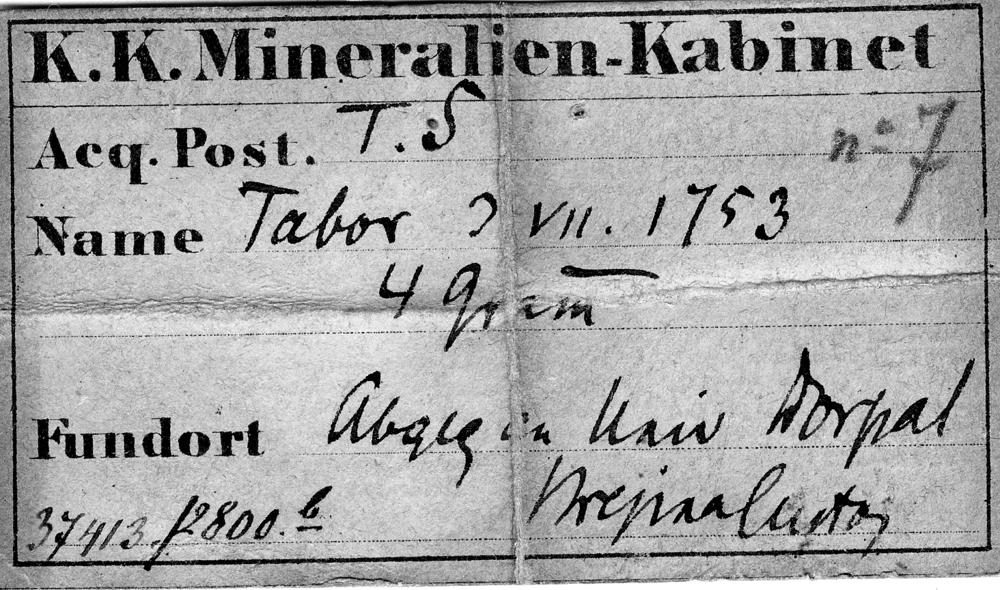 K.K. Mineralien-Kabinet
Acq. Post. T. S
n° 7
Name Tabor 3 VII. 1753
4 Gram
Fundort Abgeg an Univ Dorpat
Brezina Custos
37413. f2800. b